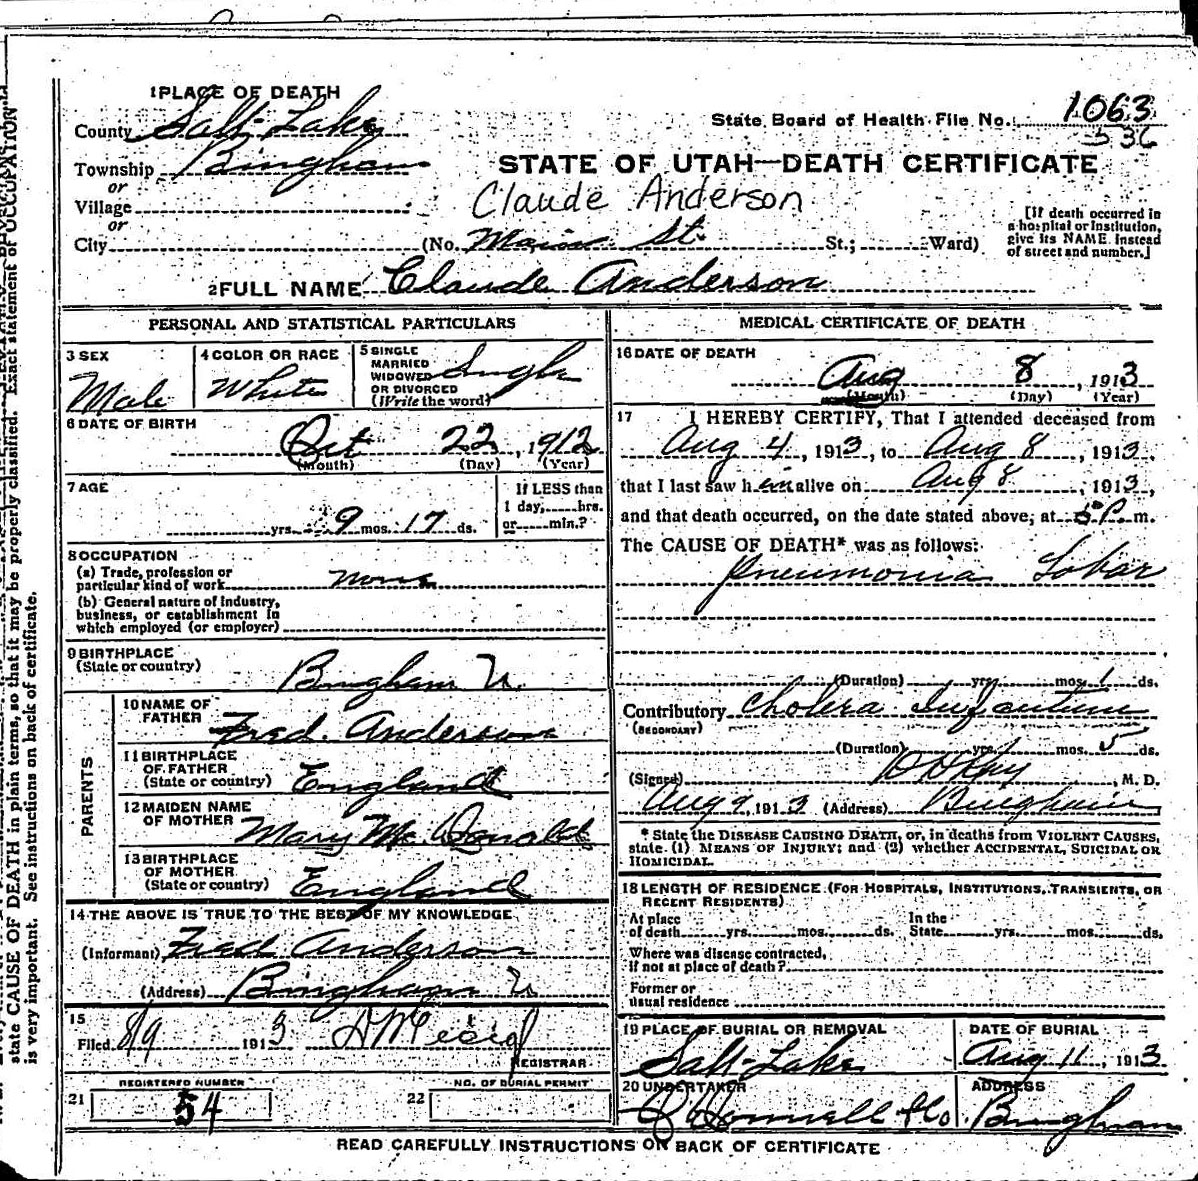 1 PLACE OF DEATH
County Salt Lake
State Board of Health File No. 1063
536
Township Bingham
STATE OF UTAH—DEATH CERTIFICATE
or
Village
Claude Anderson
or
City (No. Main St. St.; Ward)
[If death occurred in a hospital or institution, give its NAME instead of street and number.]
2 FULL NAME Claude Anderson
PERSONAL AND STATISTICAL PARTICULARS
3 SEX
Male
4 COLOR OR RACE
White
5 SINGLE MARRIED WIDOWED OR DIVORCED (Write the word)
Single
6 DATE OF BIRTH
Oct 22, 1912
(Month) (Day) (Year)
7 AGE
yrs. 9 mos. 17 ds.
If LESS than 1 day, hrs. or min.?
8 OCCUPATION
(a) Trade, profession or particular kind of work none
(b) General nature of industry, business, or establishment in which employed (or employer)
9 BIRTHPLACE
(State or country) Bingham U.
PARENTS
10 NAME OF FATHER Fred Anderson
11 BIRTHPLACE OF FATHER (State or country) England
12 MAIDEN NAME OF MOTHER Mary Mc Donald
13 BIRTHPLACE OF MOTHER (State or country) England
14 THE ABOVE IS TRUE TO THE BEST OF MY KNOWLEDGE
(Informant) Fred Anderson
(Address) Bingham U
15
Filed 8/9 1913
REGISTRAR
REGISTERED NUMBER
21 54
NO. OF BURIAL PERMIT
22
MEDICAL CERTIFICATE OF DEATH
16 DATE OF DEATH
Aug 8, 1913
(Month) (Day) (Year)
17 I HEREBY CERTIFY, That I attended deceased from
Aug 4, 1913, to Aug 8, 1913,
that I last saw him alive on Aug 8, 1913,
and that death occurred, on the date stated above, at 5 P. m.
The CAUSE OF DEATH* was as follows:
Pneumonia Lobar
(Duration) yrs. mos. 1 ds.
Contributory Cholera Infantum
(SECONDARY)
(Duration) yrs. mos. 5 ds.
(Signed) , M. D.
Aug 9, 1913 (Address) Bingham
* State the DISEASE CAUSING DEATH, or, in deaths from VIOLENT CAUSES,
state (1) MEANS OF INJURY; and (2) whether ACCIDENTAL, SUICIDAL OR
HOMICIDAL.
18 LENGTH OF RESIDENCE (FOR HOSPITALS, INSTITUTIONS, TRANSIENTS, OR
RECENT RESIDENTS)
At place of death yrs. mos. ds. In the State yrs. mos. ds.
Where was disease contracted,
if not at place of death?
Former or
usual residence
19 PLACE OF BURIAL OR REMOVAL
Salt Lake
DATE OF BURIAL
Aug 11, 1913
20 UNDERTAKER
O'Donnell & Co
ADDRESS
Bingham
READ CAREFULLY INSTRUCTIONS ON BACK OF CERTIFICATE
state CAUSE OF DEATH in plain terms, so that it may be properly classified. Exact statement of OCCUPATION
is very important. See instructions on back of certificate.